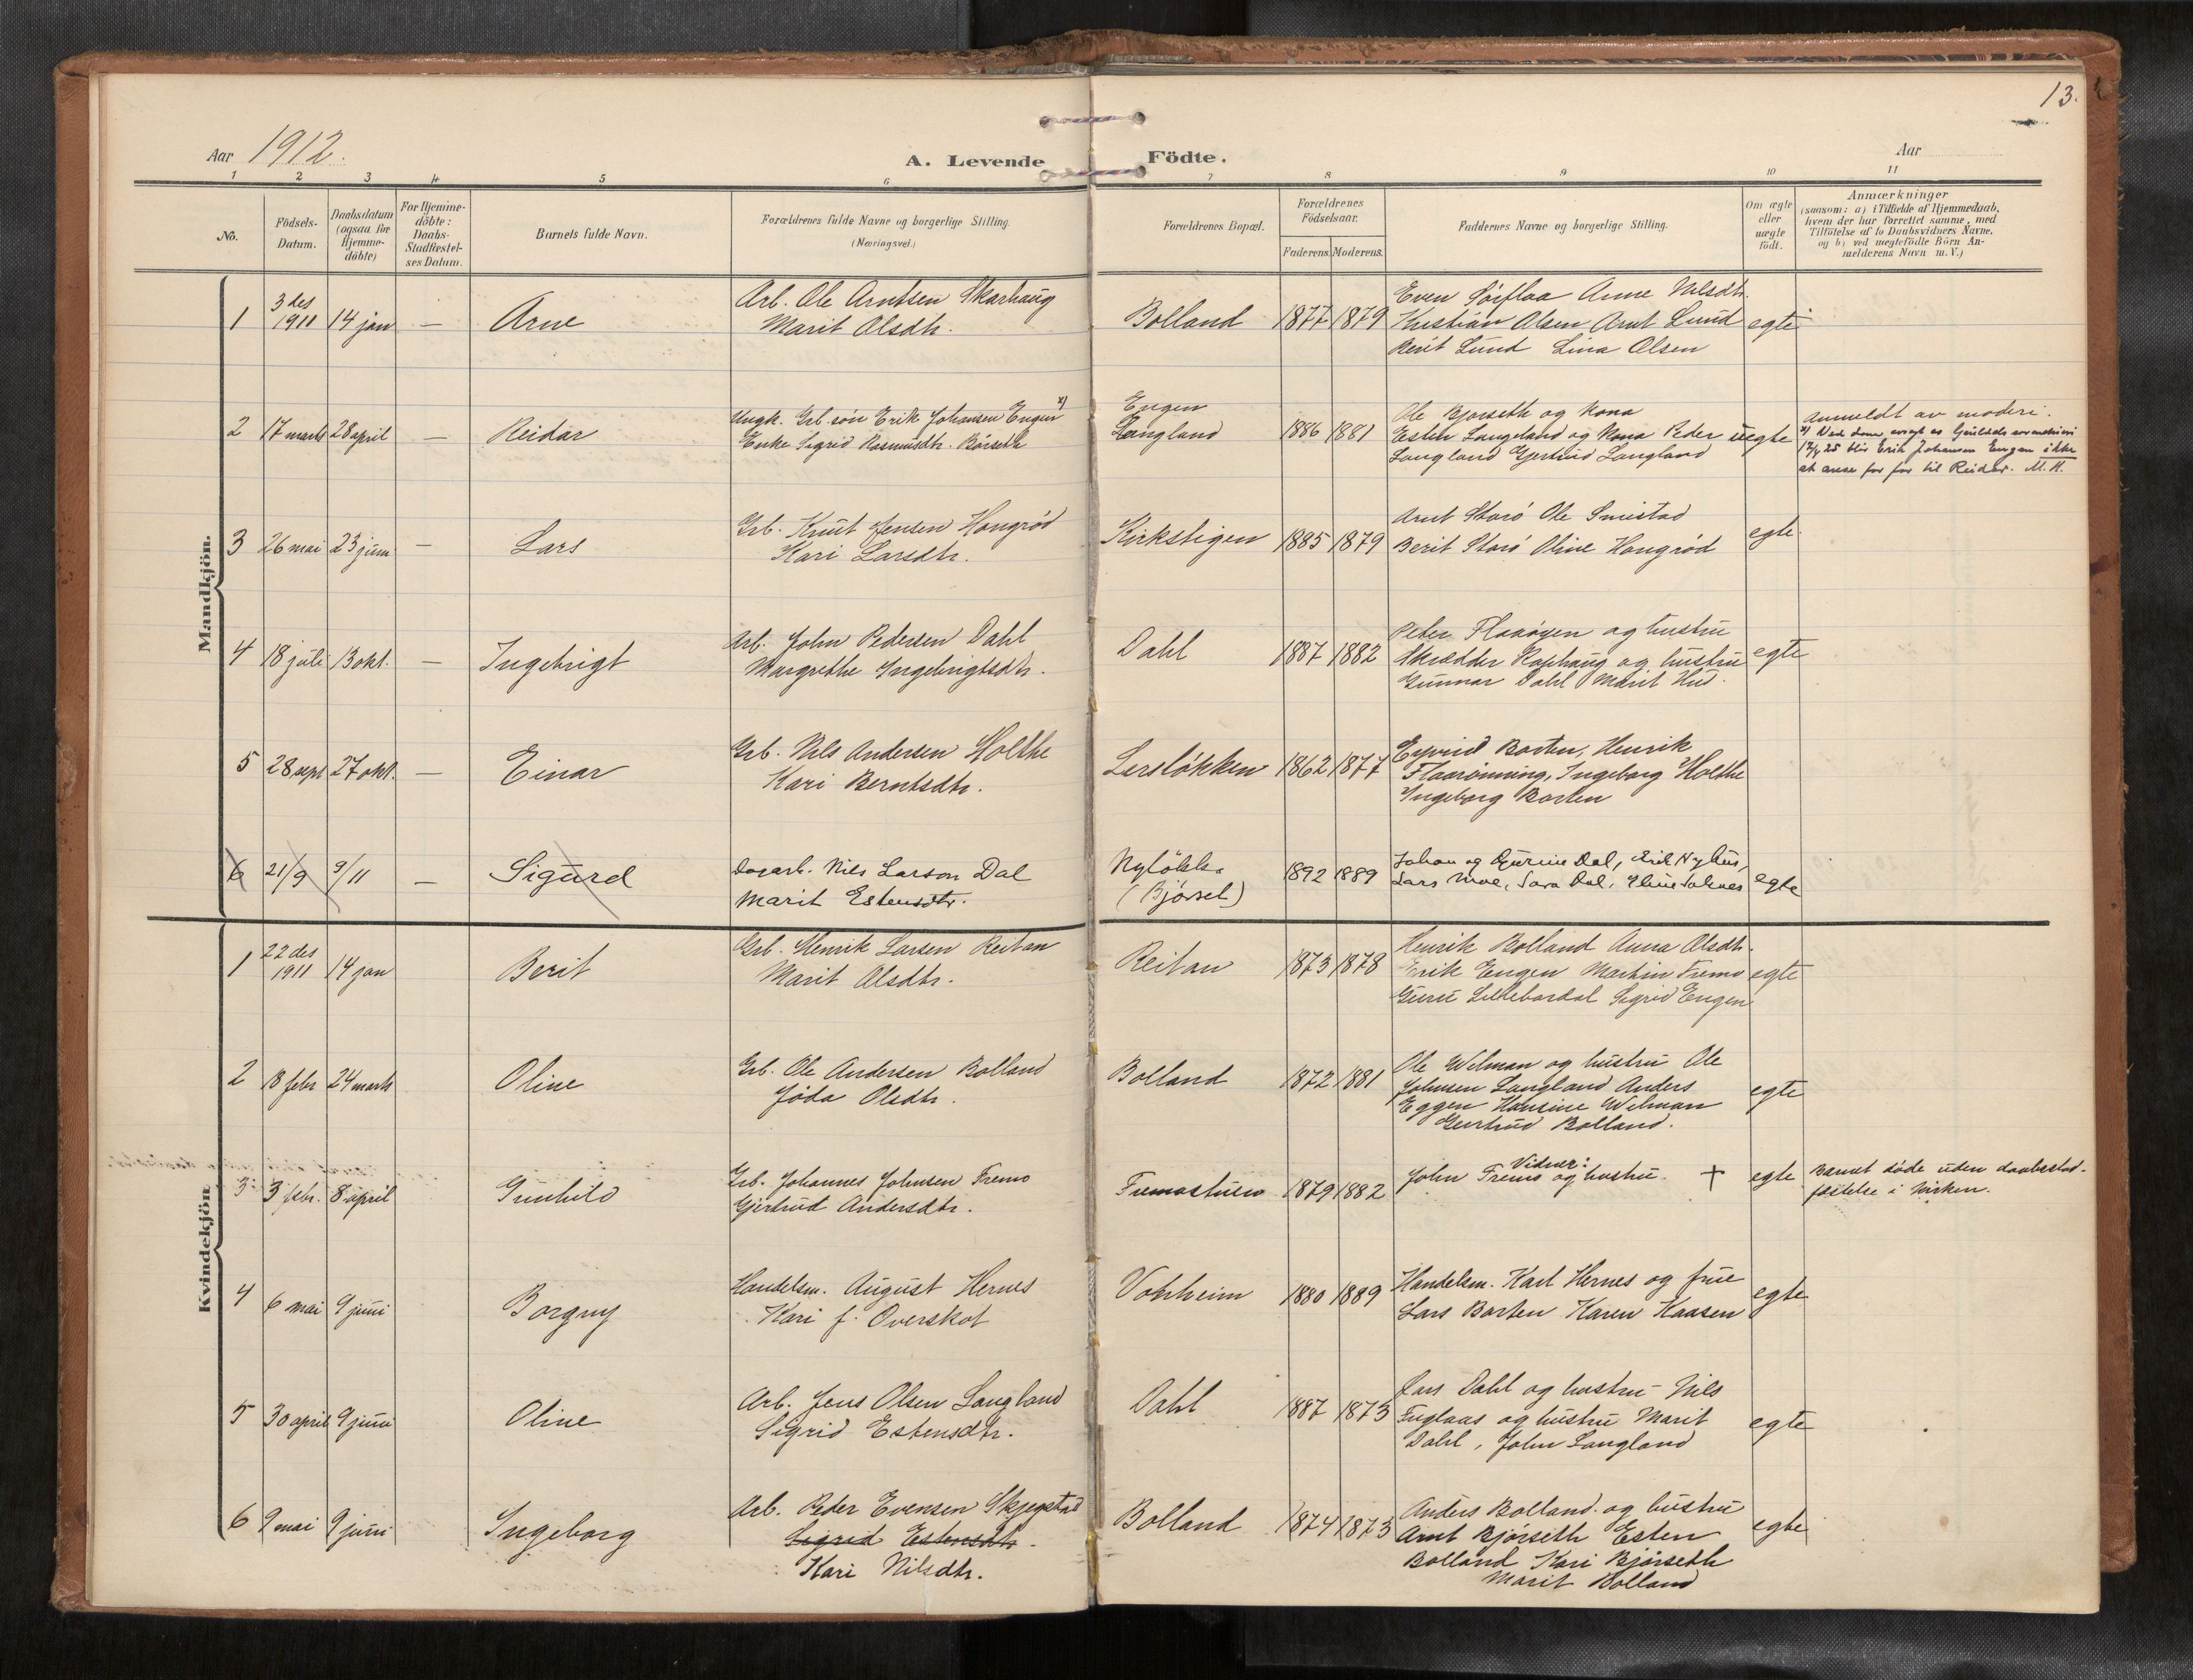 13.
Aar 1912.
A. Levende Födte.
Aar
1 2 3 4 5 6 7 8 9 10 11
No.
Födsels-
Datum.
Daabsdatum
(ogsaa for
Hjemme-
döbte)
For Hjemme-
döbte:
Daabs-
Stadfæstel-
ses Datum.
Barnets fulde Navn.
Forældrenes fulde Navne og borgerlige Stilling.
(Næringsvei.)
Forældrenes Bopæl.
Forældrenes
Födselsaar.
Faderens. Moderens.
Faddernes Navne og borgerlige Stilling.
Om ægte
eller
uægte
födt.
Anmærkninger
(saasom: a) i Tilfælde af Hjemmedaab,
hvem der har forrettet samme, med
Tilföielse af to Daabsvidners Navne,
og b) ved uægtefödte Börn An-
melderens Navn m. V.)
Mandkjön.
1 3 des 1911 14 jan — Arne
Arb. Ole Arntsen Skarhaug
Marit Olsdtr.
Bolland 1877 1879
Even Sørflaa Anne Nilsdtr.
Kristian Olsen Arnt Lund
Berit Lund Lina Olsen
egte
2 17 marts 28 april — Reidar
Ungk. Grb. søn Erik Johansen Engen x)
Enke Sigrid Rasmusdtr. Börseth
Engen
Langland
1886 1881
Ole Bjørseth og kona
Esten Langeland og kona Peder
Langland Gjertrud Langland
uegte
Anmeldt av moderi.
17/4 25 blir Erik Johansen Engen ikke
at anse for far til Reidar. M.H.
3 26 mai 23 juni — Lars
Grb. Knut Jensen Hongrød
Kari Larsdtr.
Kirkstigen 1885 1879
Arnt Storø Ole Smistad
Berit Storø Oline Hongrød
egte.
4 18 juli 13 okt. — Ingebrigt
Arb. John Pedersen Dahl
Margrethe Ingebrigtsdtr.
Dahl 1887 1882
Peter Flaaøyen og hustru
Skrædder Kaphaug og hustru
Gunnar Dahl Marit Hus.
egte
5 28 sept 27 okt. — Einar
Grb. Nils Andersen Holthe
Kari Berntsdtr.
Lersløkken 1862 1877
Eyvind Borten, Henrik
Flaarønning, Ingeborg Holthe
Ingeborg Borten
6 21/9 9/11 — Sigurd
Dagarb. Nils Larson Dal
Marit Estensdtr.
Nyløkk.
(Bjørset)
1892 1889
Johan og Gurine Dal, Erik Nyhus,
Lars Moe, Sara Dal,
egte
Kvindekjön.
1 22 des 1911 14 jan Berit
Grb. Henrik Larsen Reitan
Marit Olsdtr.
Reitan 1873 1878
Henrik Bolland Anna Olsdtr.
Erik Engen Martin Fremo
Guru Lillebordal Sigrid Engen
egte
2 18 febr 24 marts Oline
Grb. Ole Andersen Bolland
Jøda Olsdtr.
Bolland 1872 1881
Ole Welman og hustru Ole
Johnsen Langland Anders
Eggen Hansine Welman
Guertrud Bolland.
egte
3 3 febr. 8 april Gunhild
Grb. Johannes Johnsen Fremo
Gjertrud Andersdtr.
Fremostuen 1879 1882
Vidner:
John Fremo og hustru. †
egte
Barnet døde uden daabsstad-
fæstelse i kirken.
4 6 mai 9 juni Borgny
Handelsm. August Hernes
Kari f. Overskot
Vohheim 1880 1889
Handelsm. Karl Hernes og frue
Lars Borten Karen Kaasen
egte
5 30 april 9 juni Oline
Arb. Jens Olsen Langland
Sigrid Estensdtr.
Dahl 1887 1873
Lars Dahl og hustru Nils
Fuglaas og hustru Marit
Dahl, John Langland
egte
6 9 mai 9 juni Ingeborg
Arb. Peder Evensen Skjegstad
Sigrid Estensdtr.
Kari Nilsdtr.
Bolland 1874 1873
Anders Bolland. og hustru
Arnt Bjørseth Esten
Bolland Kari Bjørseth
Marit Bolland
egte